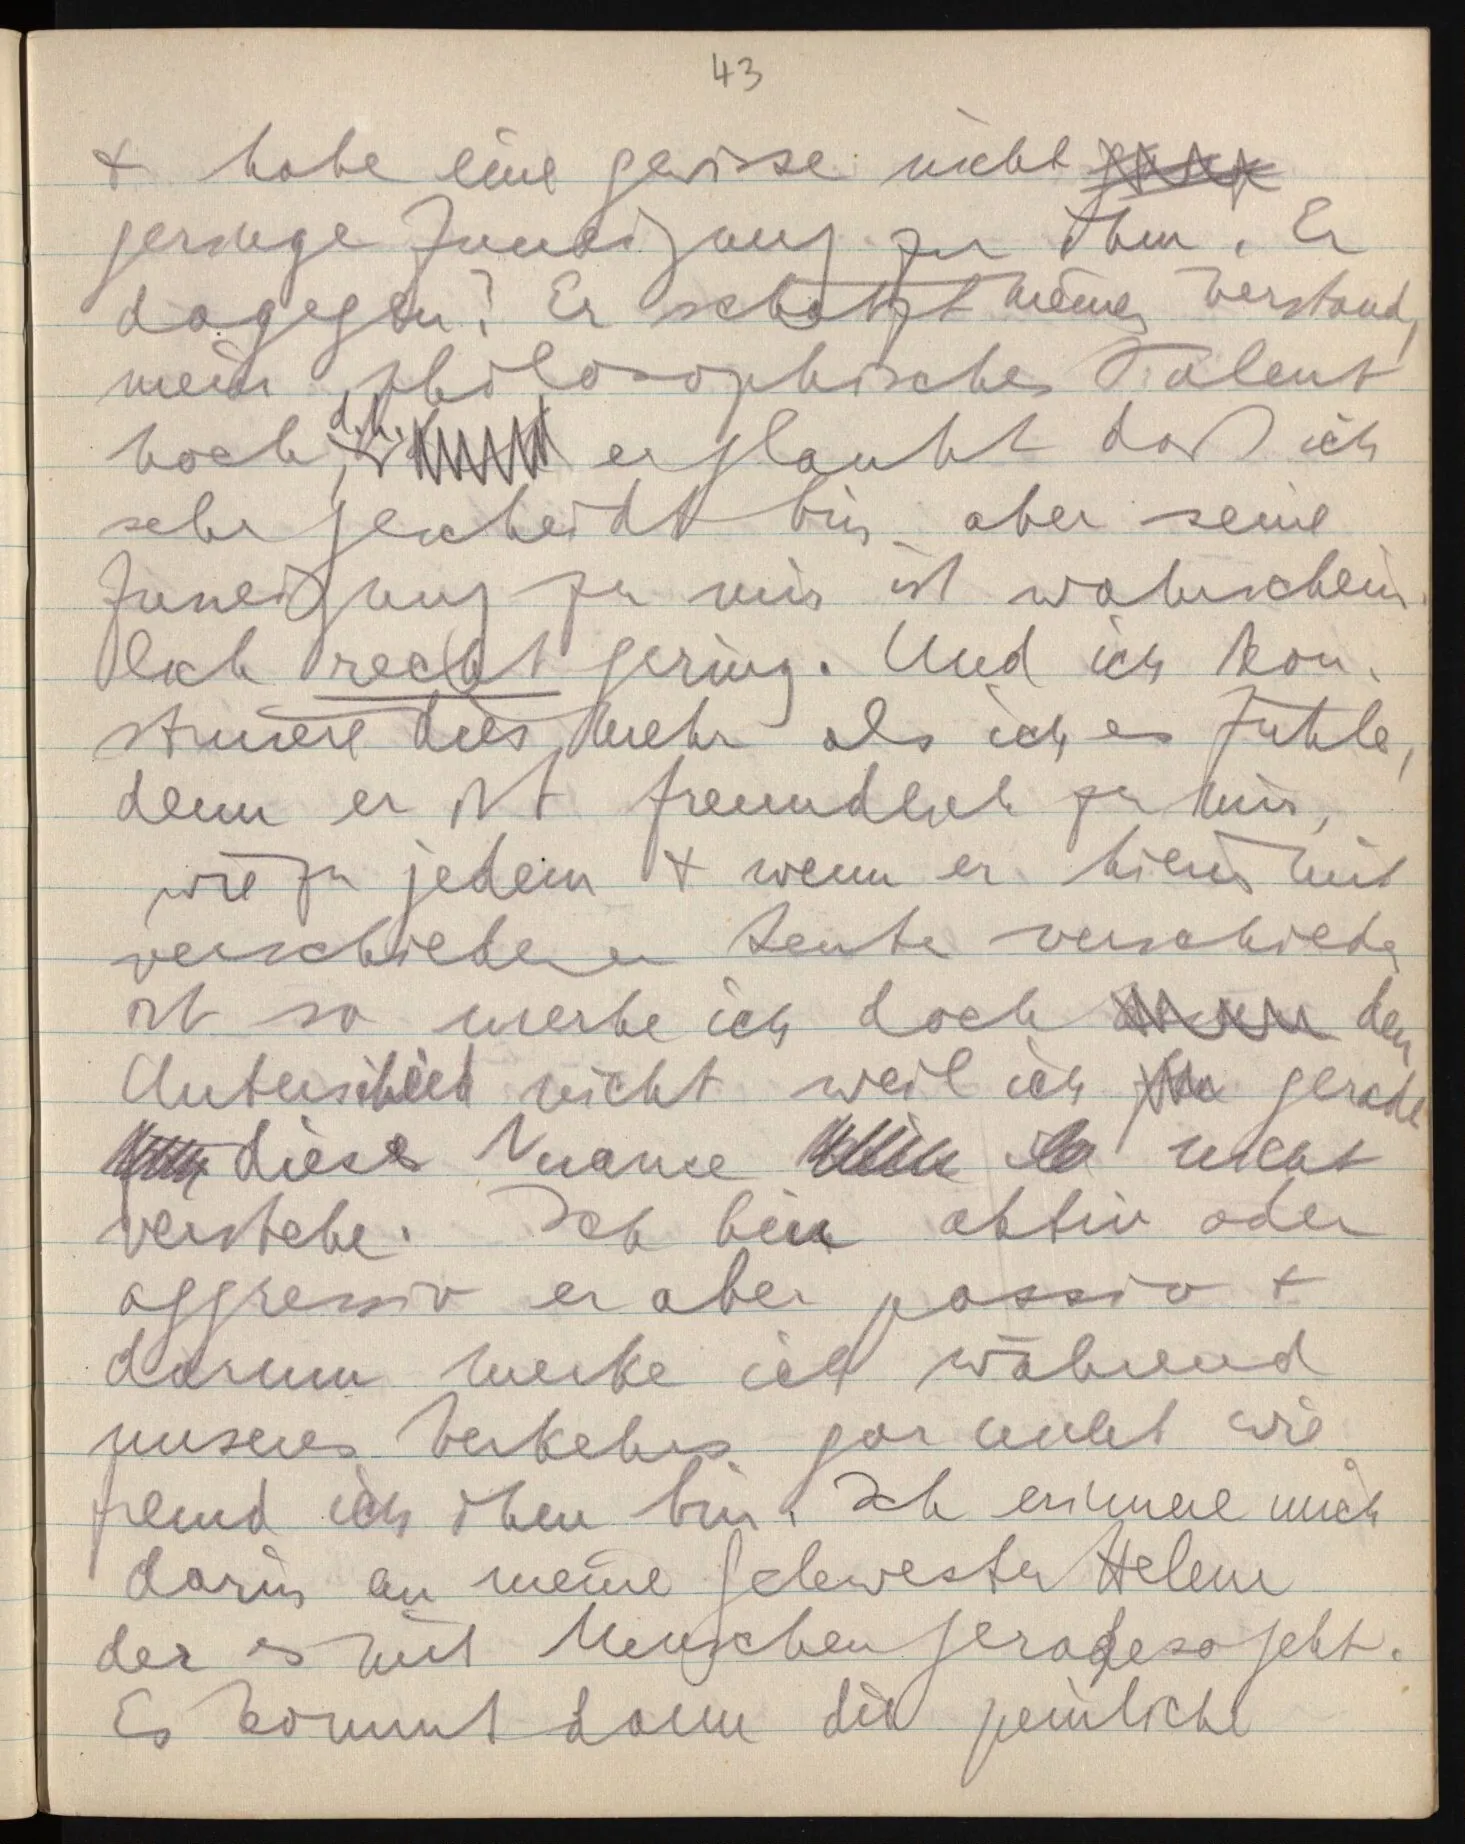 43
+ habe eine gewisse nicht
geringe Zuneigung zu ihm. Er
dagegen? Er schätzt meinen Verstand,
mein philosophisches Talent
hoch, d.h., er glaubt daß ich
sehr gescheidt bin aber seine
Zuneigung zu mir ist wahrschein-
lich recht gering. Und ich kon-
struiere dies mehr als ich es fühle,
denn er ist freundlich zu mir,
wie zu jedem + wenn er hierin mit
verschiedenen Leuten verschieden
ist so merke ich doch den
Unterschied nicht weil ich gerade
diese Nuance nicht
verstehe. Ich bin aktiv oder
aggressiv er aber passiv +
darum merke ich während
unseres Verkehrs gar nicht wie
fremd ich ihm bin. Ich erinnere mich
darin an meine Schwester Helene
der es mit Menschen geradeso geht.
Es kommt dann die peinliche